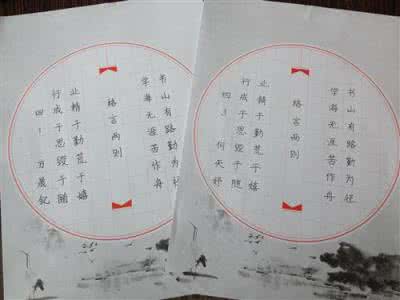 书山有路勤为径
学海无涯苦作舟
格言两则
业精于勤荒于嬉
行成于思毁于随
四3 何天
书山有路勤为径
学海无涯苦作舟
格言两则
业精于勤荒于嬉
行成于思毁于随
四1 晨